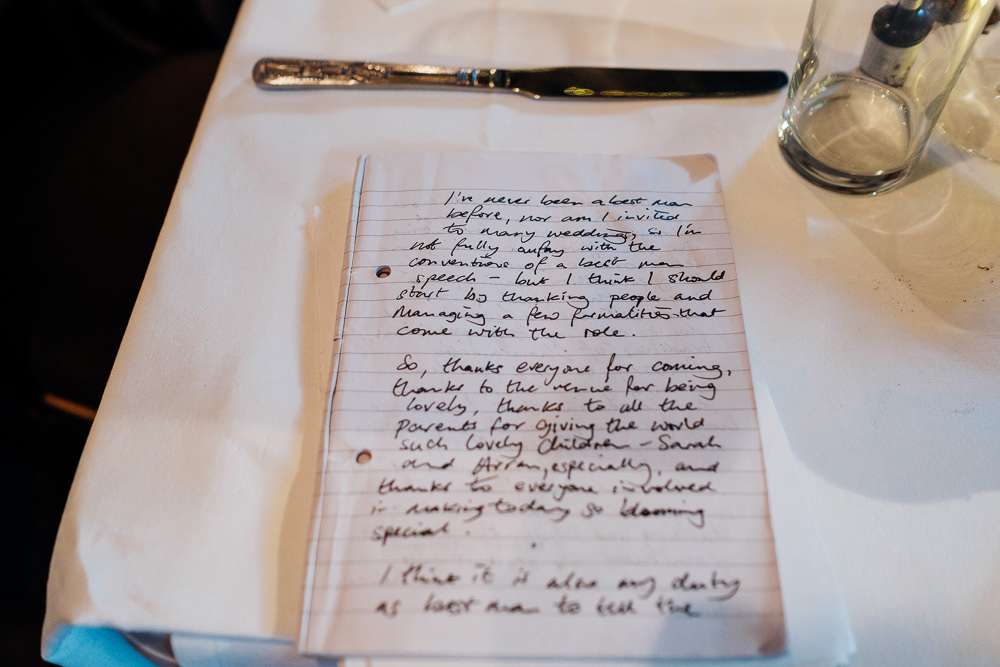 I've never been a best man
before, nor am I invited
to many weddings, so I'm
not fully aufay with the
conventions of a best man
speech – but I think I should
start by thanking people and
Managing a few formalities that
come with the role.
So, thanks everyone for coming,
thanks to the venue for being
lovely, thanks to all the
parents for giving the world
such lovely children – Sarah
and Arran, especially, and
thanks to everyone involved
in making today so blooming
special.
I think it is also my duty
as best man to tell the